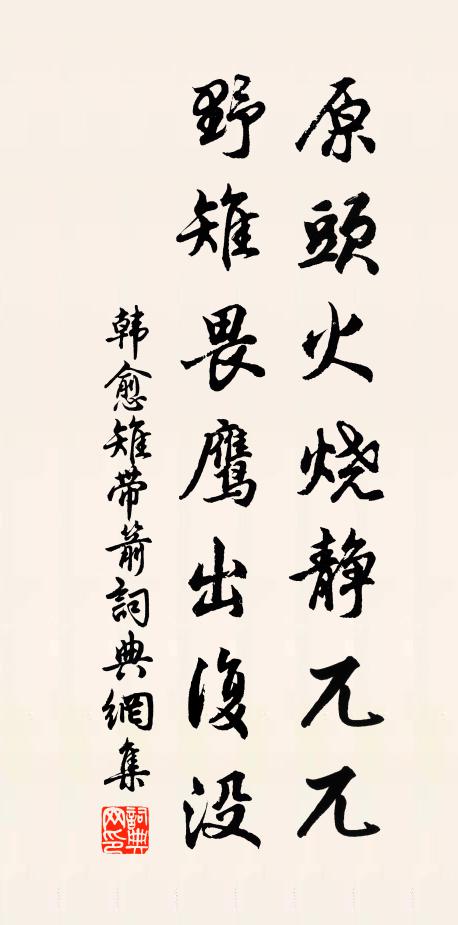 原頭火烧静兀兀
野雉畏鷹出復没
韩愈雉带箭詞典網集
詞典网印